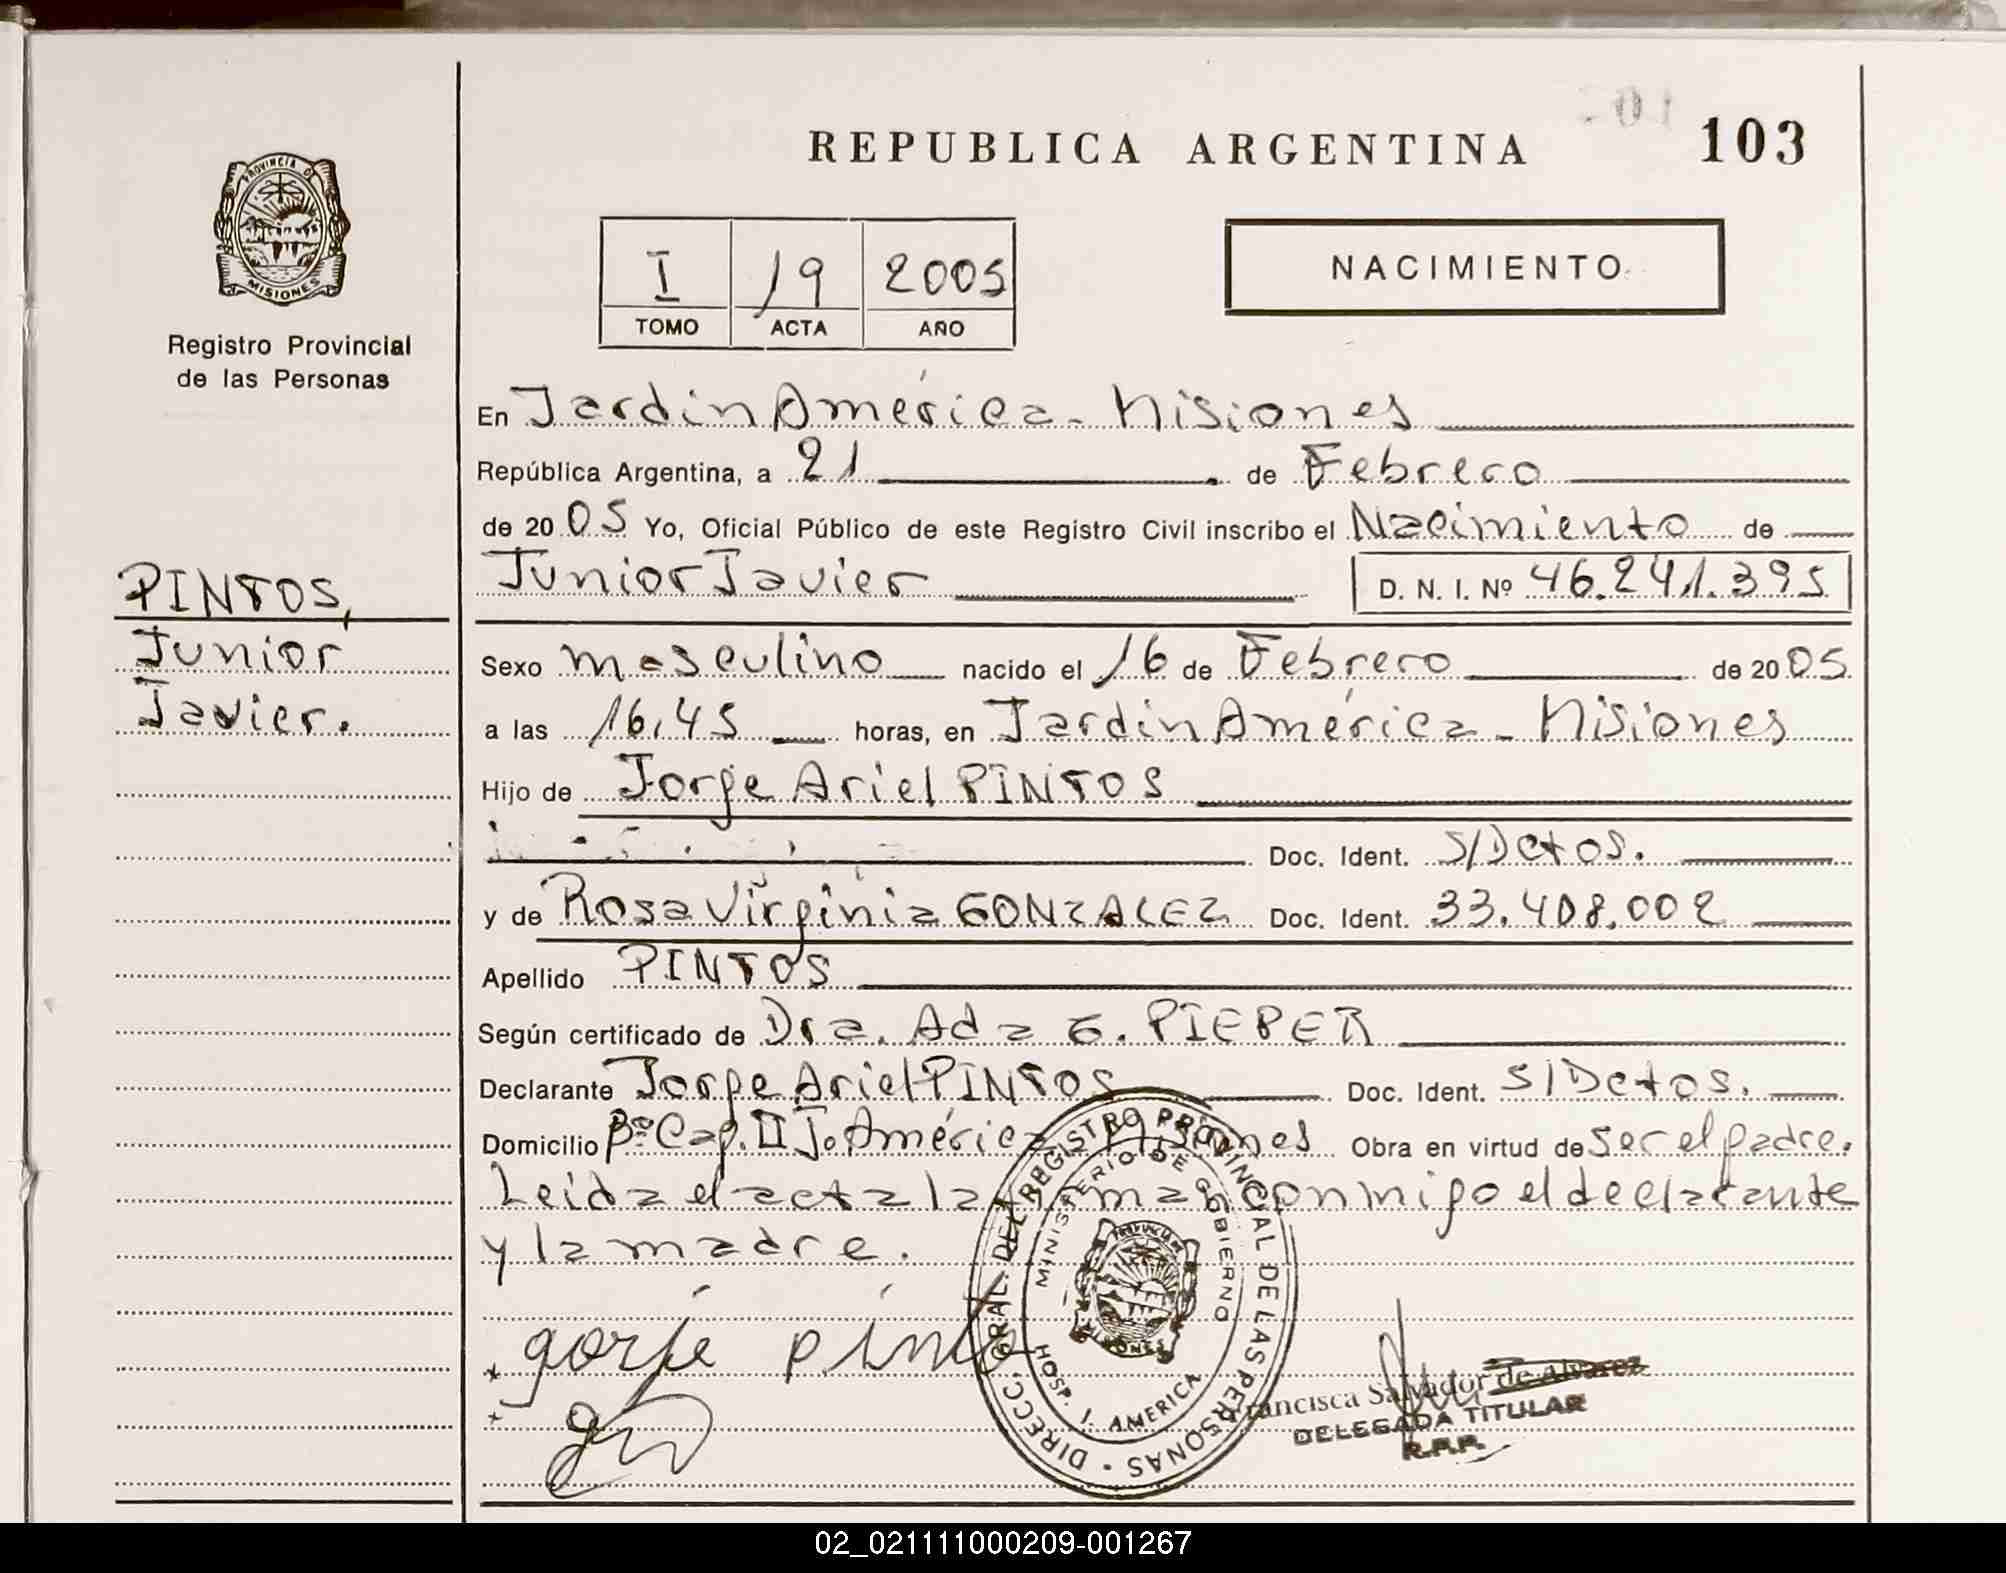 REPUBLICA ARGENTINA 103
PROVINCIA DE
MISIONES
Registro Provincial
de las Personas
I 19 2005
TOMO ACTA AÑO
NACIMIENTO
PINTOS,
Junior
Javier.
En Jardin América - Misiones
República Argentina, a 21 de Febrero
de 20 05 Yo, Oficial Público de este Registro Civil inscribo el Nacimiento de
Junior Javier D. N. I. Nº 46.241.395
Sexo masculino nacido el 16 de Febrero de 20 05
a las 16,45 horas, en Jardin América - Misiones
Hijo de Jorge Ariel PINTOS
Doc. Ident. S/Dctos.
y de Rosa Virginia GONZALEZ Doc. Ident. 33.408.002
Apellido PINTOS
Según certificado de Dra. Ada G. PIEPER
Declarante Jorge Ariel PINTOS Doc. Ident. S/Dctos.
Domicilio Bº Cap. II J. América Misiones Obra en virtud de ser el padre.
Leida el acta la firma conmigo el declarante
y la madre.
gorje pinto
DIRECC. GRAL. DEL REGISTRO PROVINCIAL DE LAS PERSONAS
MINISTERIO DE GOBIERNO
HOSP. J. AMERICA
Francisca Salvador de Alvarez
DELEGADA TITULAR
R.P.P.
02_021111000209-001267